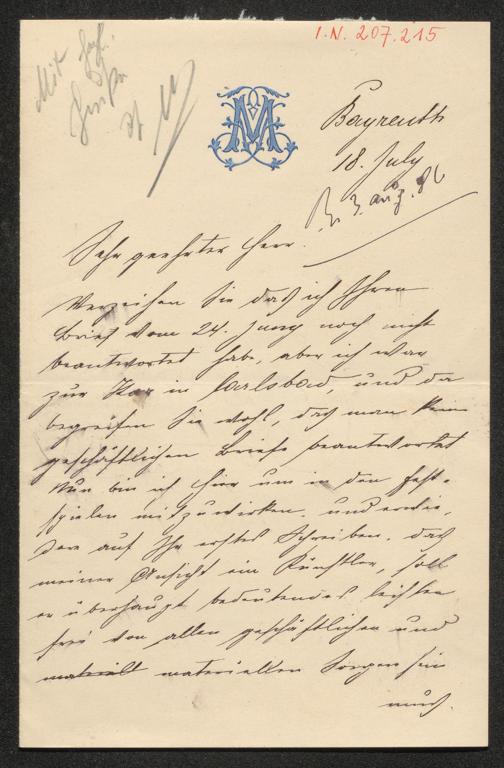 I.N. 207.215
Mit
M
Bayreuth
18. July
3. Aug. 86
Sehr geehrter Herr.
Verzeihen Sie daß ich Ihren
Brief vom 24. Juny noch nicht
beantwortet habe, aber ich war
zur Kur in Carlsbad, und da
begreifen Sie wohl, daß man keine
geschäftlichen Briefe beantwortet
Nun bin ich hier um in den Fest-
spielen mitzuwirken, und erwie-
dere auf Ihr erstes Schreiben, daß
meiner Ansicht ein Künstler, soll
er überhaupt bedeutendes leisten
frei von allen geschäftlichen und
materiellen Sorgen sein
muß.